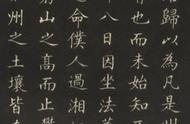 歸以為凡是
有也而未始知
十八日因坐法
命僕人過湘
山之高而止
州之土壤皆